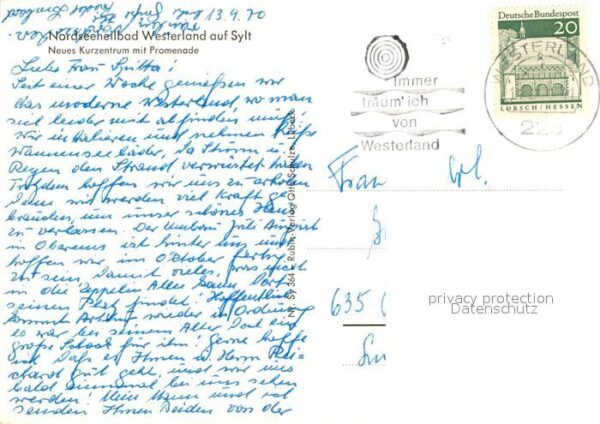 13.9.70
Nordseeheilbad Westerland auf Sylt
Neues Kurzentrum mit Promenade
Liebe Frau
Seit einer Woche genießen wir
das moderne Westerland, wo man
viel leider mit abfinden muß
wir inhalieren und nehmen heiße
Wannenbäder, da Sturm u.
Regen den Strand verwüstet haben
Trotzdem hoffen wir uns zu erholen
Denn wir werden viel Kraft ge
brauchen, um unser schönes Haus
zu verlassen. Der Umbau Juli August
in Oberems ist hinter uns und
hoffen wir im Oktober fertig
zu sein, damit vieles, was nicht
in die Zeppelin Allee kann, dort
seinen Platz findet. Hoffentlich
kommt Arthur wieder in Ordnung
es war bei seinem Alter doch ein
große Schock für ihn! Gerne hoffe
ich daß es Ihnen u Herrn
gut geht, und wir uns
bald einmal bei uns sehen
werden! Mein Mann und ich
senden Ihnen Beiden von der
Nr. Sy 364 Rubin-Verlag Otto Schulze, Lübeck
Immer
träum' ich
von
Westerland
Deutsche Bundespost
20
LORSCH/HESSEN
WESTERLAND
Frau
635
privacy protection
Datenschutz